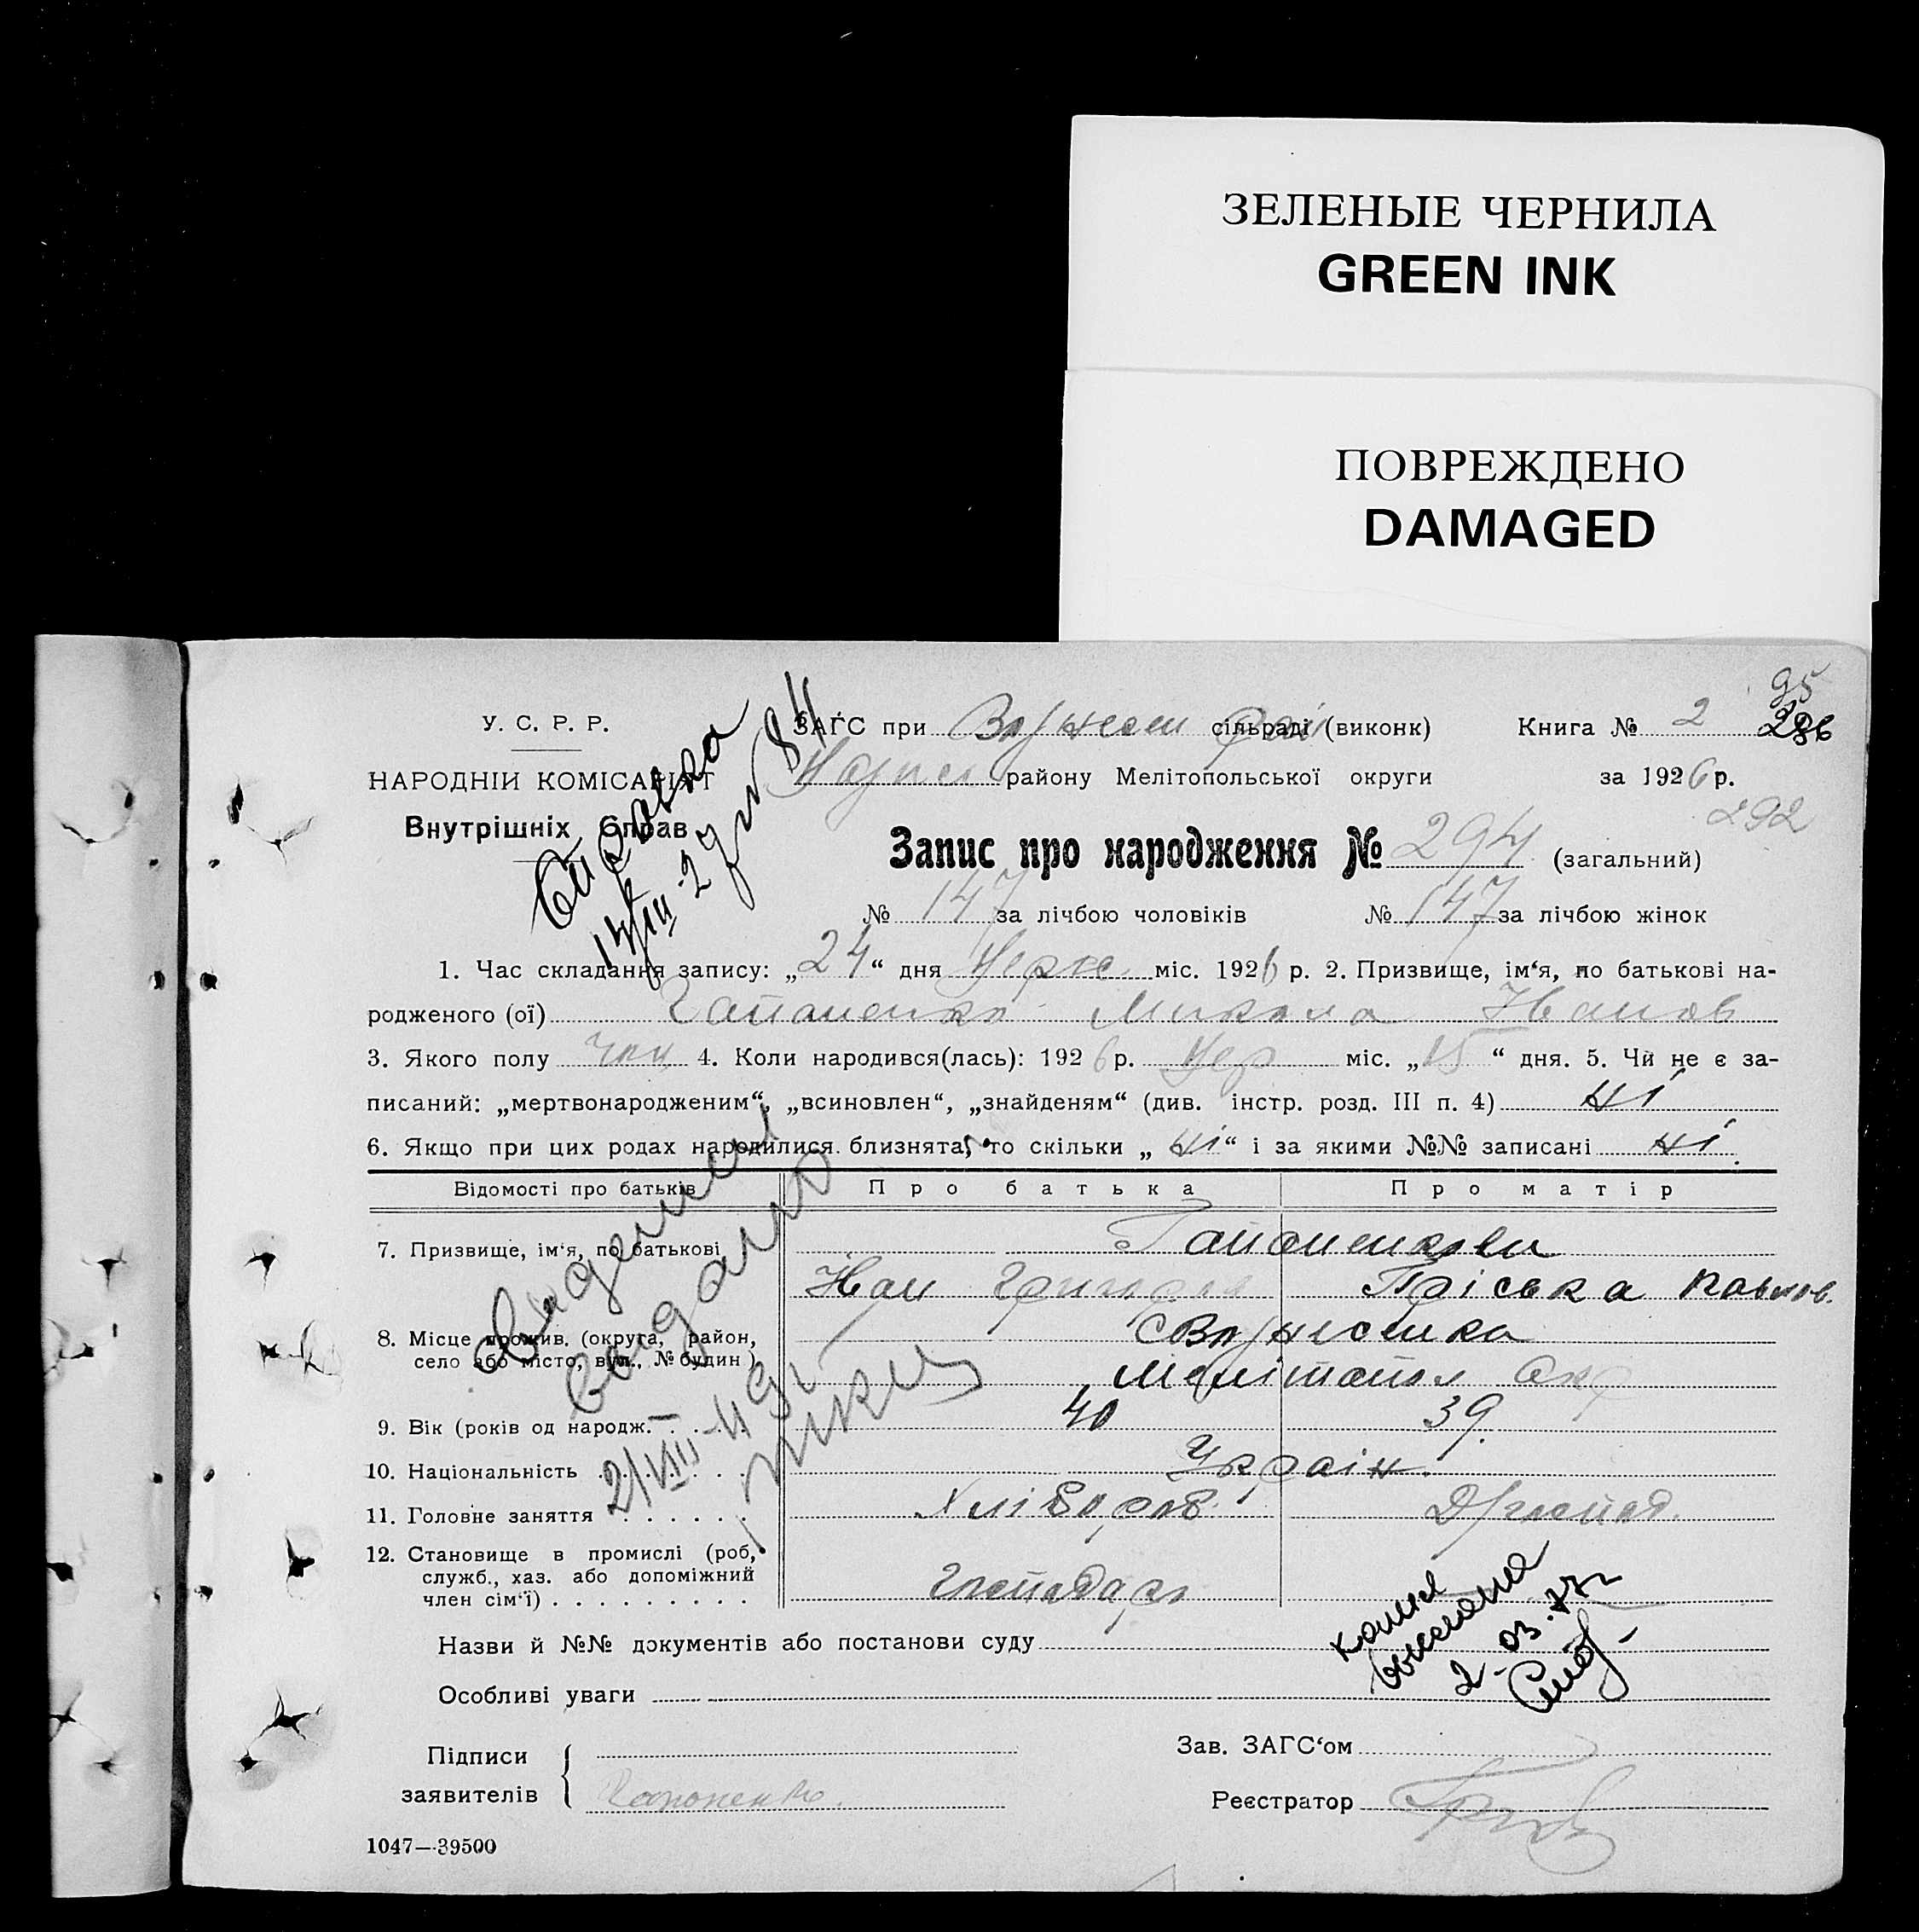 ЗЕЛЕНЫЕ ЧЕРНИЛА
GREEN INK
ПОВРЕЖДЕНО
DAMAGED
95
286
У. С. Р. Р.
НАРОДНІЙ КОМІСАРІЯТ
Внутрішніх Справ
ЗАГС при сільраді (виконк) Книга № 2
району Мелітопольської округи за 1926 р.
292
Запис про народження № 294 (загальний)
№ 147 за лічбою чоловіків № 147 за лічбою жінок
Справка
1. Час складання запису: „24“ дня Черв міс. 1926 р. 2. Призвище, ім‘я, по батькові на-
родженого (ої) Гапоненко Микола Іванов
3. Якого полу чол 4. Коли народився(лась): 1926 р. Чер міс. „15“ дня. 5. Чи не є за-
писаний: „мертвонародженим“, „всиновлен“, „знайденям“ (див. інстр. розд. III п. 4) ні
6. Якщо при цих родах народилися близнята, то скільки „ні“ і за якими №№ записані ні
Відомості про батьків Про батька Про матір
7. Призвище, ім‘я, по батькові Гапоненкови
Іван Григоров Пріська Павлов.
8. Місце прожив. (округа, район,
село або місто, вул., № будин) Мелітопол Окр
9. Вік (років од народж. 40 39.
10. Національність Україн.
11. Головне заняття Хлібороб
12. Становище в промислі (роб,
служб., хаз. або допоміжний
член сім‘ї) Господарь
Назви й №№ документів або постанови суду
Особливі уваги
копия
выслана
2-03.77г
Підписи
заявителів Гапоненко.
Зав. ЗАГС‘ом
Реєстратор
1047—39500